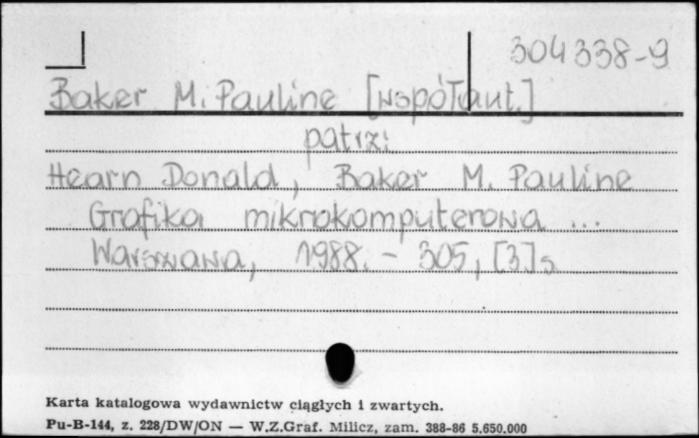 304338-9
Baker M. Pauline [współaut.]
patrz:
Hearn Donald, Baker M. Pauline
Grafika mikrokomputerowa ...
Warszawa, 1988. - 305, [3] s
Karta katalogowa wydawnictw ciągłych i zwartych.
Pu-B-144, z. 228/DW/ON — W.Z.Graf. Milicz, zam. 388-86 5.650.000